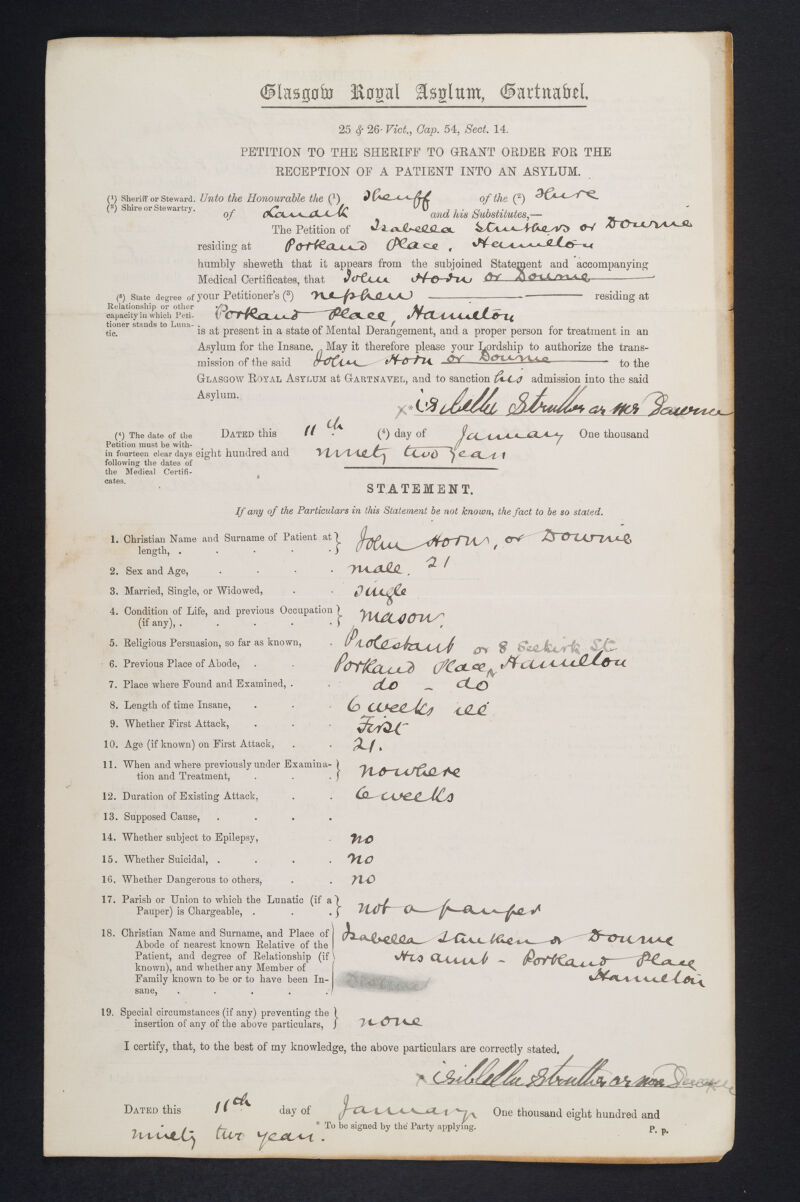 Glasgow Royal Asylum, Gartnavel.
25 & 26 Vict., Cap. 54, Sect. 14.
PETITION TO THE SHERIFF TO GRANT ORDER FOR THE
RECEPTION OF A PATIENT INTO AN ASYLUM.
(1) Sheriff or Steward.
(2) Shire or Stewartry.
Unto the Honourable the (1) Sheriff of the (2) Shire
of Lanark and his Substitutes,—
The Petition of Isabella Struthers or Downie
residing at Portland Place, Hamilton
humbly sheweth that it appears from the subjoined Statement and accompanying
Medical Certificates, that John Horn or Downie
(3) State degree of
Relationship or other
capacity in which Peti-
tioner stands to Luna-
tic.
your Petitioner's (3) nephew residing at
Portland Place, Hamilton
is at present in a state of Mental Derangement, and a proper person for treatment in an
Asylum for the Insane. May it therefore please your Lordship to authorize the trans-
mission of the said John Horn or Downie to the
GLASGOW ROYAL ASYLUM at GARTNAVEL, and to sanction his admission into the said
Asylum.
× isibella Struther or mrs Downie
(4) The date of the
Petition must be with-
in fourteen clear days
following the dates of
the Medical Certifi-
cates.
DATED this 11th (4) day of January One thousand
eight hundred and ninety two years
STATEMENT.
If any of the Particulars in this Statement be not known, the fact to be so stated.
1. Christian Name and Surname of Patient at
length, . John Horn, or Downie
2. Sex and Age, male. 21
3. Married, Single, or Widowed, single
4. Condition of Life, and previous Occupation
(if any), . mason,
5. Religious Persuasion, so far as known, Protestant
or 8 Selkirk St.
6. Previous Place of Abode, . Portland Place, Hamilton
7. Place where Found and Examined, . do - do
8. Length of time Insane, 6 weeks ill
9. Whether First Attack, First
10. Age (if known) on First Attack, 21.
11. When and where previously under Examina-
tion and Treatment, nowhere
12. Duration of Existing Attack, 6 weeks
13. Supposed Cause, .
14. Whether subject to Epilepsy, no
15. Whether Suicidal, . no
16. Whether Dangerous to others, no
17. Parish or Union to which the Lunatic (if a
Pauper) is Chargeable, . not a pauper
18. Christian Name and Surname, and Place of
Abode of nearest known Relative of the
Patient, and degree of Relationship (if
known), and whether any Member of
Family known to be or to have been In-
sane, .
Isabella Struthers or Downie
His aunt - Portland Place
Hamilton
19. Special circumstances (if any) preventing the
insertion of any of the above particulars, none
I certify, that, to the best of my knowledge, the above particulars are correctly stated.
× isiblella Struther or mrs Downie
DATED this 11th day of January One thousand eight hundred and
ninety two years.
* To be signed by the Party applying.
P. p.